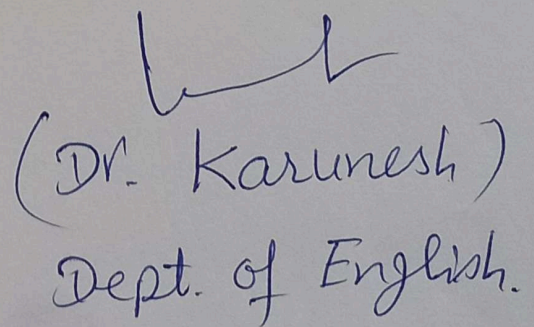 (Dr. Karunesh)
Dept. of English.